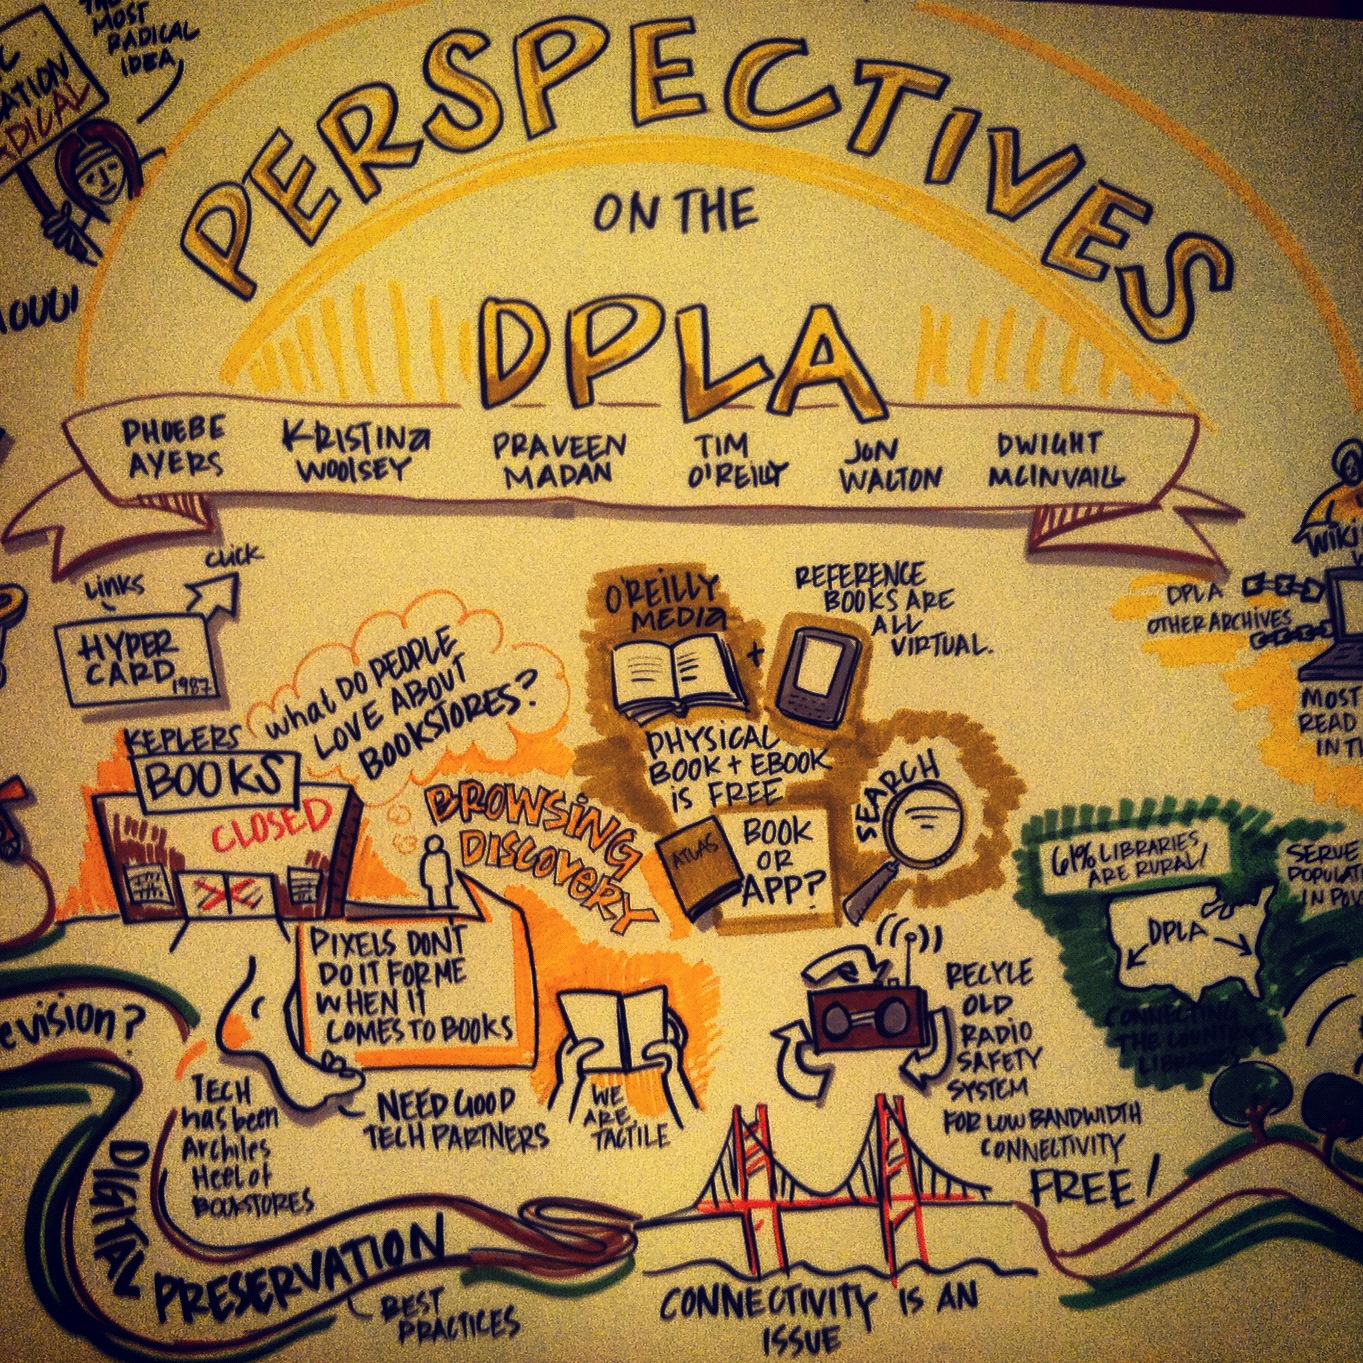 MOST
RADICAL
IDEA
PERSPECTIVES
ON THE
DPLA
PHOEBE
AYERS
KRISTINA
WOOLSEY
PRAVEEN
MADAN
TIM
O'REILLY
JON
WALTON
DWIGHT
MCINVAILL
LINKS
CLICK
HYPER
CARD 1987
WHAT DO PEOPLE
LOVE ABOUT
BOOKSTORES?
KEPLERS
BOOKS
CLOSED
BROWSING
DISCOVERY
PIXELS DONT
DO IT FOR ME
WHEN IT
COMES TO BOOKS
TECH
has been
Archiles
Heel of
BOOKSTORES
NEED GOOD
TECH PARTNERS
WE
ARE
TACTILE
O'REILLY
MEDIA
+
REFERENCE
BOOKS ARE
ALL
VIRTUAL.
PHYSICAL
BOOK + EBOOK
IS FREE
SEARCH
ATLAS
BOOK
OR
APP?
RECYLE
OLD
RADIO
SAFETY
SYSTEM
FOR LOW BANDWIDTH
CONNECTIVITY
FREE!
DPLA
OTHER ARCHIVES
MOST
READ
61% LIBRARIES
ARE RURAL!
DPLA
CONNECTING
THE COUNTRY'S
LIBRARIES
SERVE
DIGITAL
PRESERVATION
BEST
PRACTICES
CONNECTIVITY IS AN
ISSUE